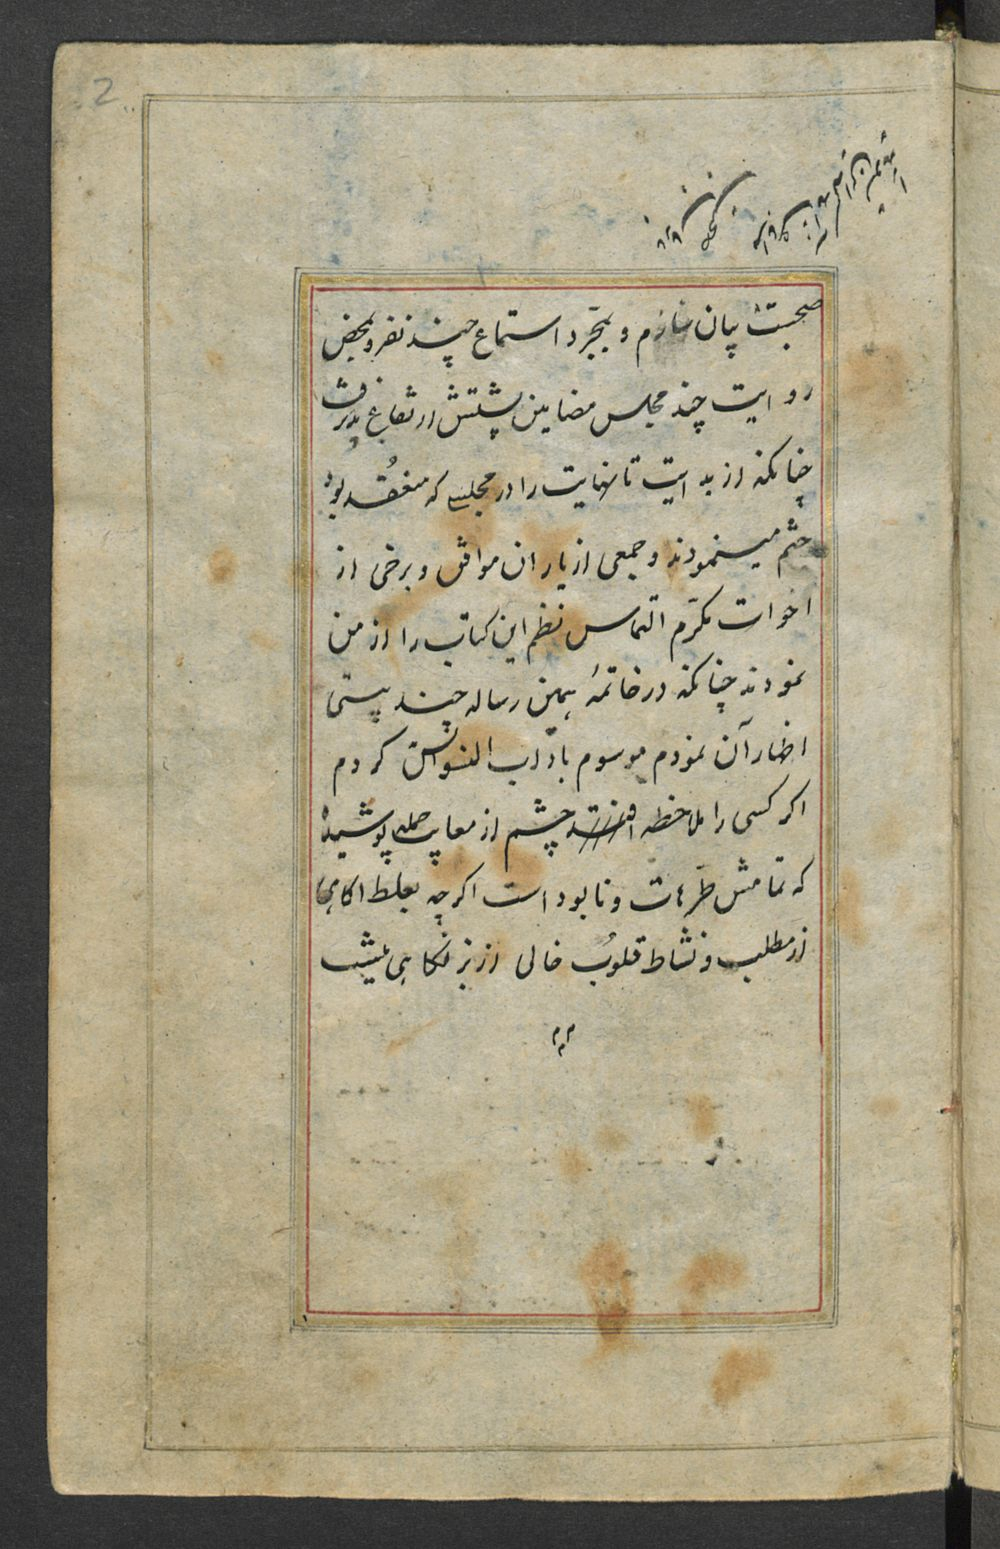 2
صحبت بیان سازم و بمجرد استماع چند نفر و بمحض
روایت چند مجلس مضامین پشتش ارتفاع پذیرفت
چنانکه از بدایت تا نهایت را در مجلسی که منعقد بود
ختم مینمودند و جمعی از یاران موافق و برخی از
اخوات مکرّم التماس نظم این کتاب را از من
نمودند چنانکه در خاتمهٔ همین رساله چند بیتی
اظهار آن نمودم موسوم بادب النسوانش کردم
اکر کسی را ملاحظه افتد چشم از معایب جمله پوشیده
که تمامش طرّهات و نابود است اکرچه بغلط اکاهی
از مطلب و نشاط قلوُب خالی از بزنکاهی نیست
م م م